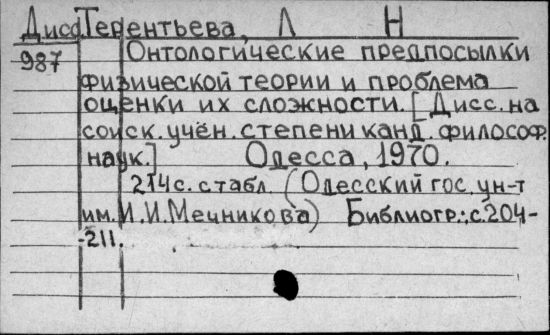 Дисс Терентьева, Л Н
987 Онтологические предпосылки
физической теории и проблема
оценки их сложности. [Дисс. на
соиск. учён. степени канд. философ.
наук.] Одесса, 1970.
214 с. с табл. (Одесский гос. ун-т
им. И. И. Мечникова) Библиогр.: с. 204-
-211.